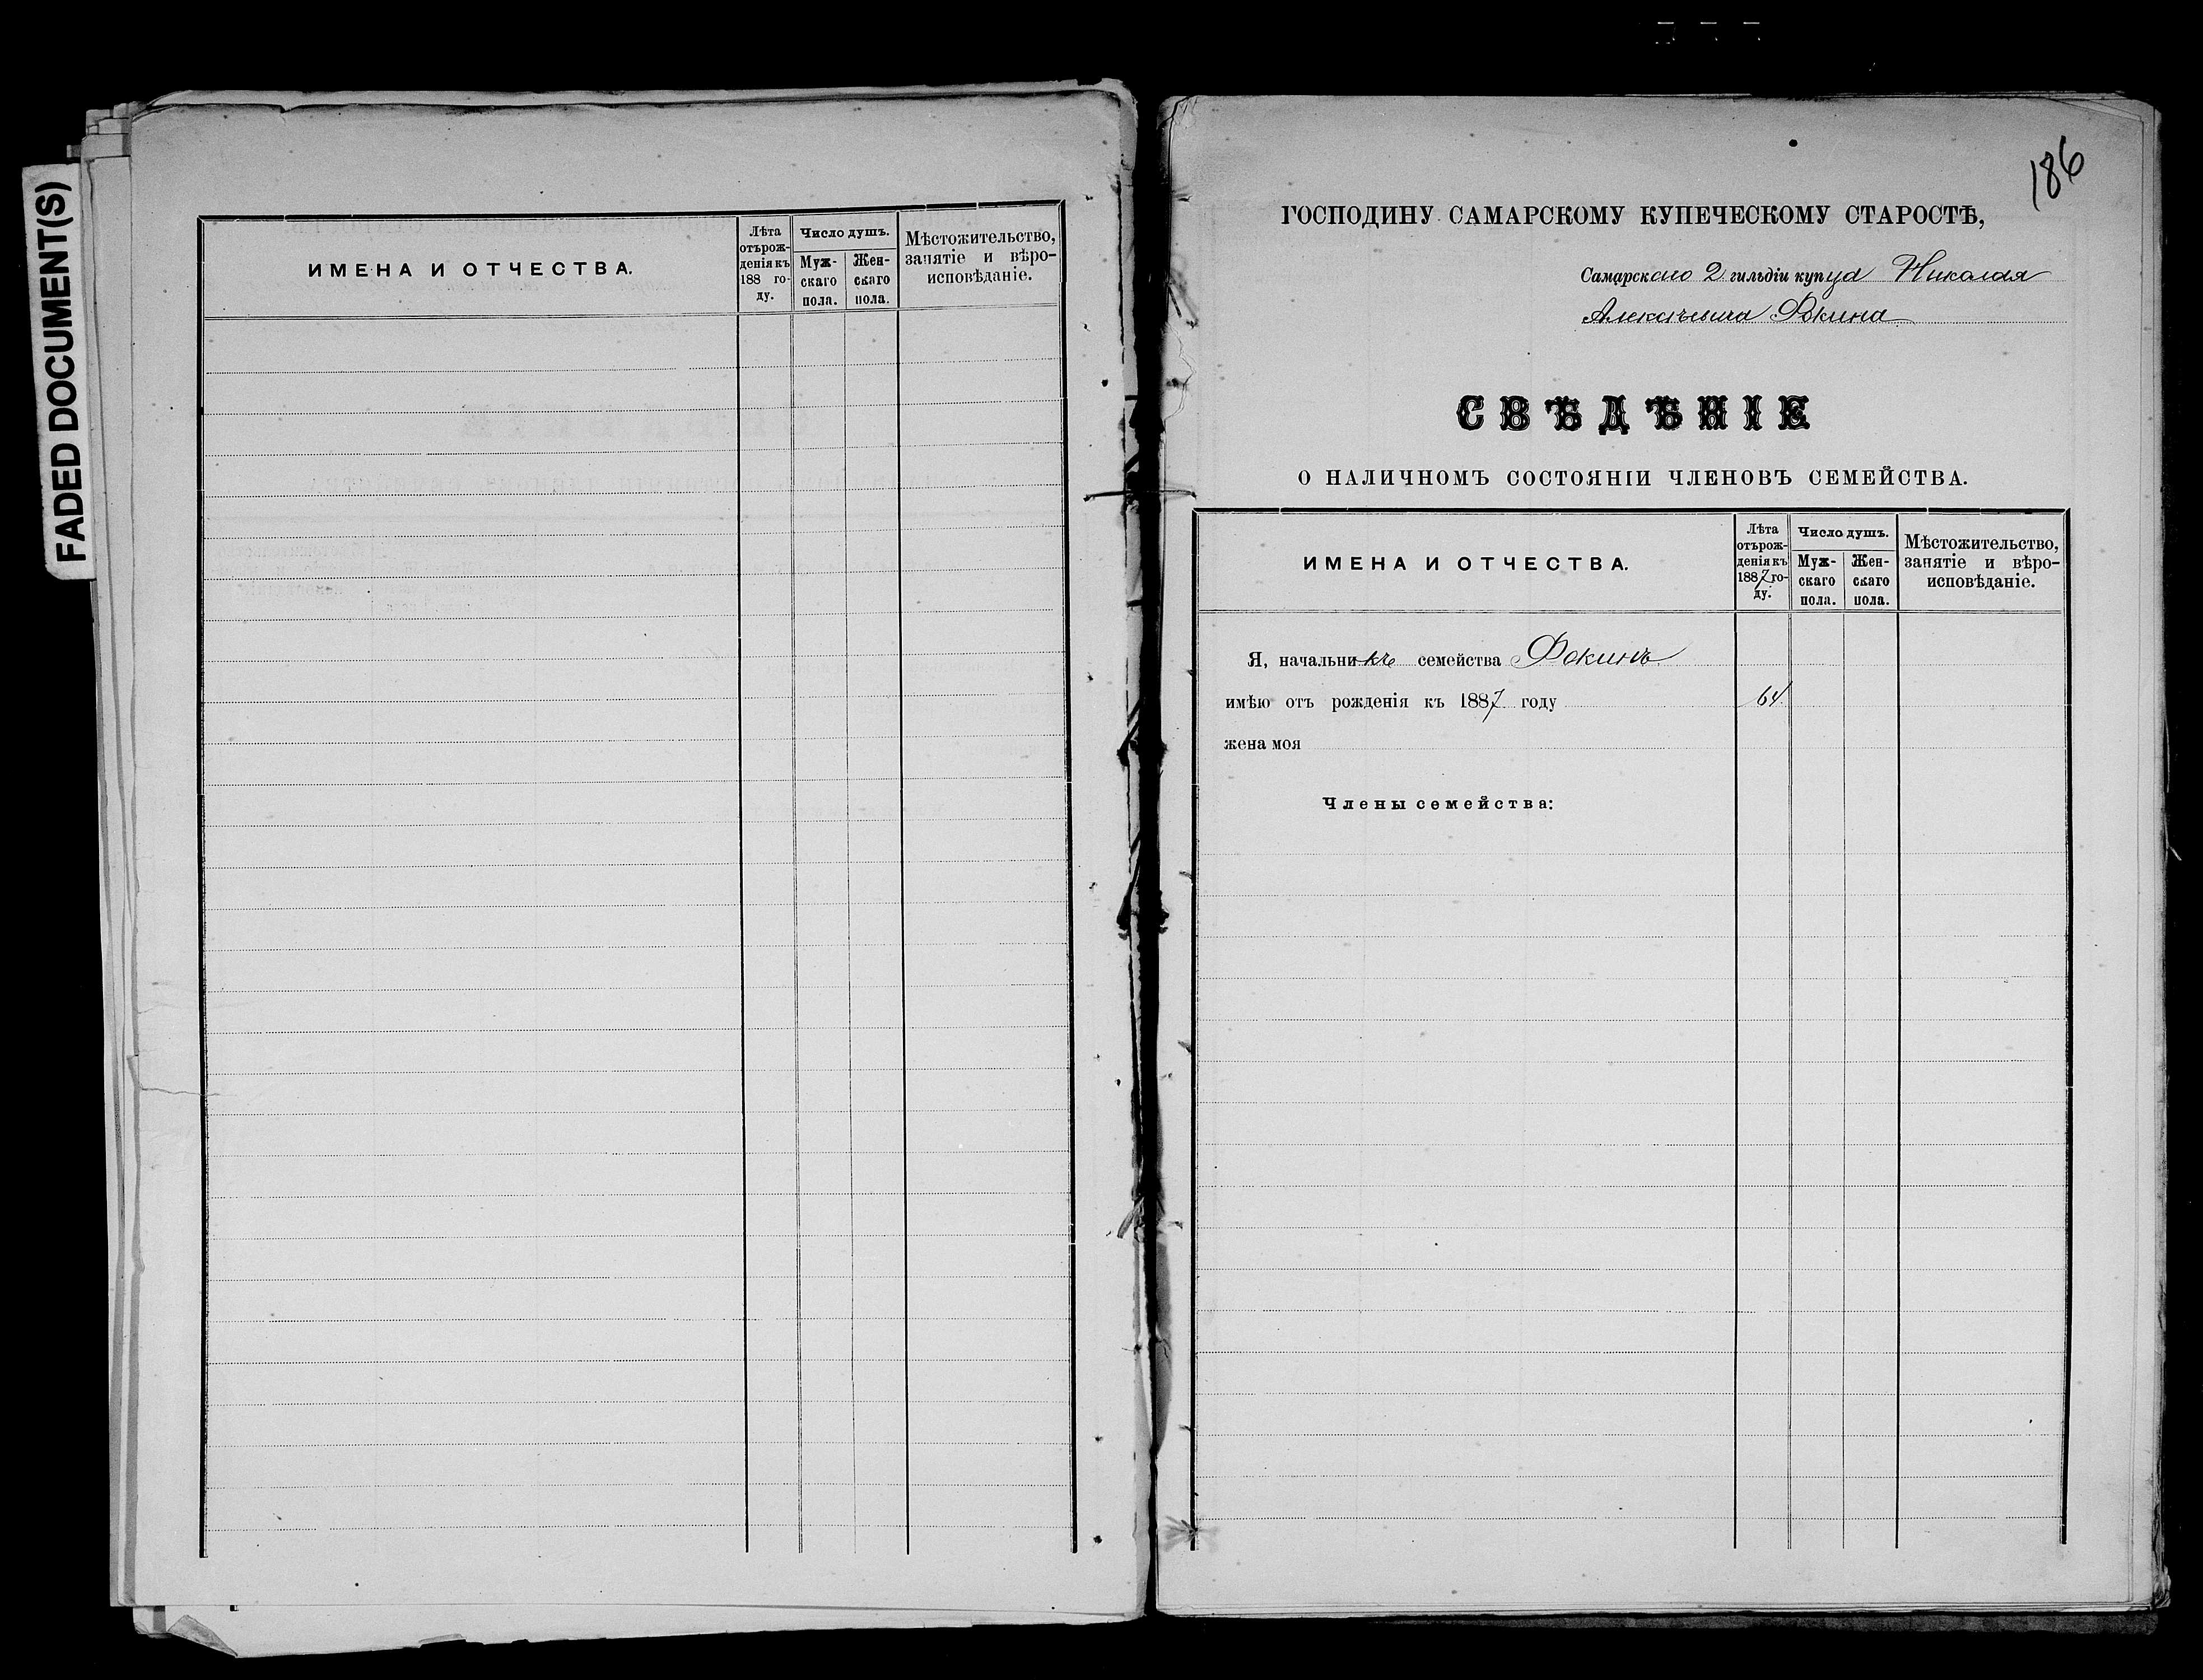 FADED DOCUMENT(S)
ИМЕНА И ОТЧЕСТВА.
Лѣта
отърож-
денія къ
188 го-
ду.
Число душъ.
Муж-
скаго
пола.
Жен-
скаго
пола.
Мѣстожительство,
занятіе и вѣро-
исповѣданіе.
186
ГОСПОДИНУ САМАРСКОМУ КУПЕЧЕСКОМУ СТАРОСТѢ,
Самарскаго 2 гильдіи купца Николая
Алексѣевича Фокина
СВѢДѢНІЕ
О НАЛИЧНОМЪ СОСТОЯНІИ ЧЛЕНОВЪ СЕМЕЙСТВА.
ИМЕНА И ОТЧЕСТВА.
Лѣта
отърож-
денія къ
1887 го-
ду.
Число душъ.
Муж-
скаго
пола.
Жен-
скаго
пола.
Мѣстожительство,
занятіе и вѣро-
исповѣданіе.
Я, начальникъ семейства Фокинъ
имѣю отъ рожденія къ 1887 году 64.
жена моя
Члены семейства: